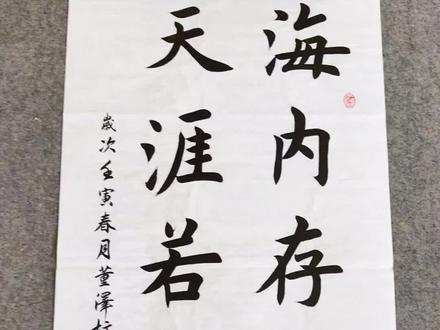 海内存
天涯若
歲次壬寅春月董澤